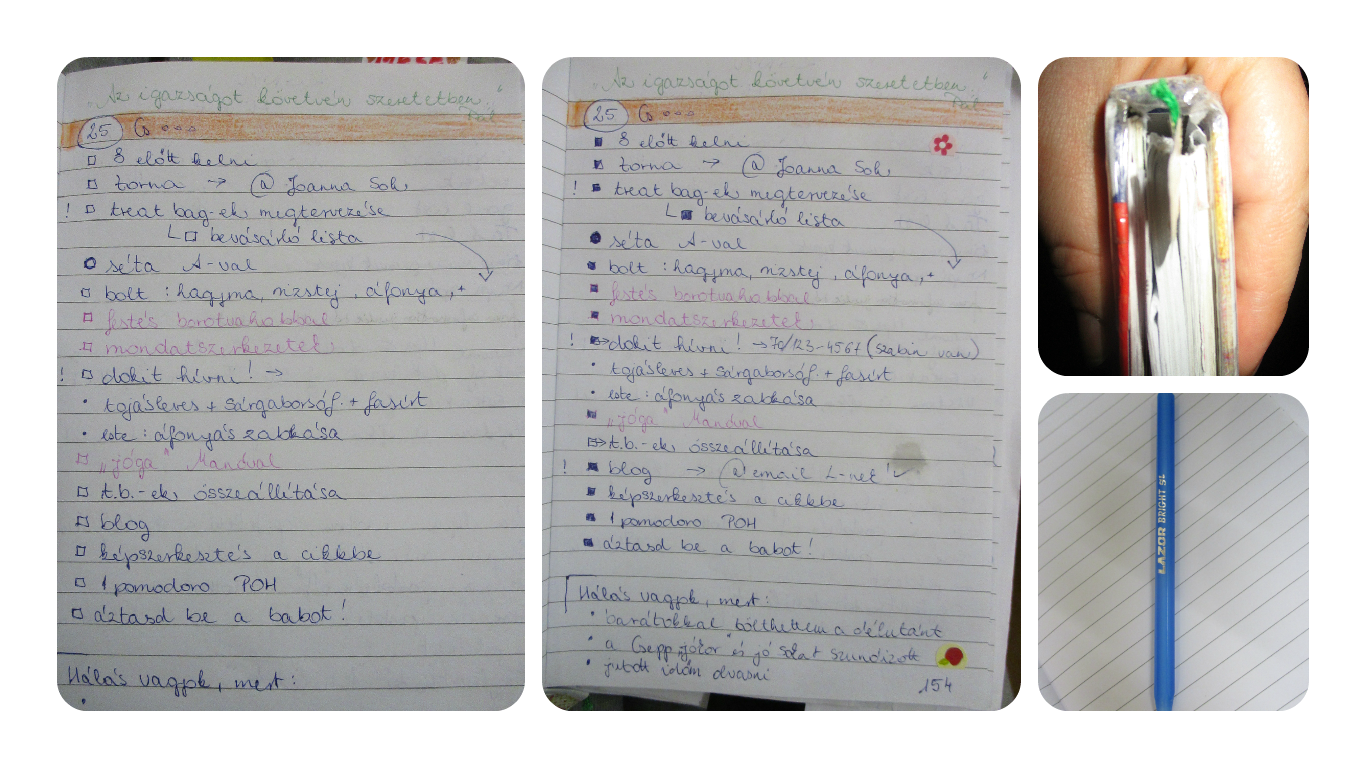 „Az igazságot követvén szeretetben."
Pál
25 Cs ooo
8 előtt kelni
torna → @ Joanna Soh
! treat bag-ek megtervezése
bevásárló lista
séta A-val
bolt : hagyma, rizstej, áfonya, +
festés borotvahabbal
mondatszerkezetek
! dokit hívni! →
tojásleves + sárgaborsóf. + fasírt
este : áfonyás zabkása
„jóga" Manóval
t.b.-ek összeállítása
blog
képszerkesztés a cikkbe
1 pomodoro POH
áztasd be a babot!
Hálás vagyok, mert:
„Az igazságot követvén szeretetben"
Pál
25 Cs ooo
8 előtt kelni
torna → @ Joanna Soh
! treat bag-ek megtervezése
bevásárló lista
séta A-val
bolt : hagyma, rizstej, áfonya, +
festés borotvahabbal
mondatszerkezetek
! dokit hívni! → 70/123-4567 (szabin van)
tojásleves + sárgaborsóf. + fasírt
este : áfonyás zabkása
„jóga" Manóval
t.b.-ek összeállítása
! blog → @ email L-nek! ✓
képszerkesztés a cikkbe
1 pomodoro POH
áztasd be a babot!
Hálás vagyok, mert:
barátokkal tölthettem a délutánt
a Csepp jókor és jó sokat szundizott
jutott időm olvasni
154
LAZOR BRIGHT SL